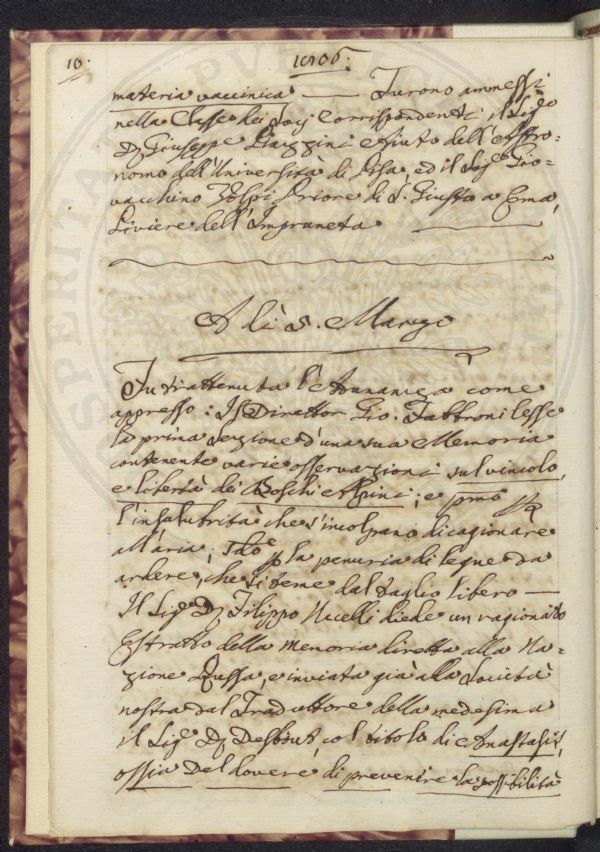 10.
1806.
materia vaccinica — Furono ammessi
nella Classe dei Socj Corrispondenti il Sig.e
D. Giuseppe Piazzini Aiuto dell'Astro=
nomo dell'Università di Pisa, ed il Sig.e Gio=
vacchino Volpi Priore di S. Giusto a Ema,
Piviere dell'Impruneta
A dì 5. Marzo
Fu trattenuta l'Adunanza come
appresso: Il Direttor Gio. Fabbroni lesse
la prima Sezione d'una sua Memoria
contenente varie osservazioni sul vincolo,
e libertà dei Boschi Alpini; e pmo
l'insalubrità che s'incolpano di cagionare
all'aria; 2do la penuria di legne da
ardere, che si teme dal taglio libero —
Il Sig.e D. Filippo Uccelli diede un ragionato
Estratto della memoria diretta alla Na=
zione Russa, e inviata già alla Società
nostra dal Traduttore della medesima
il Sig.e D. Desbout, col titolo di Anastasis,
ossia Del dovere di prevenire la possibilità